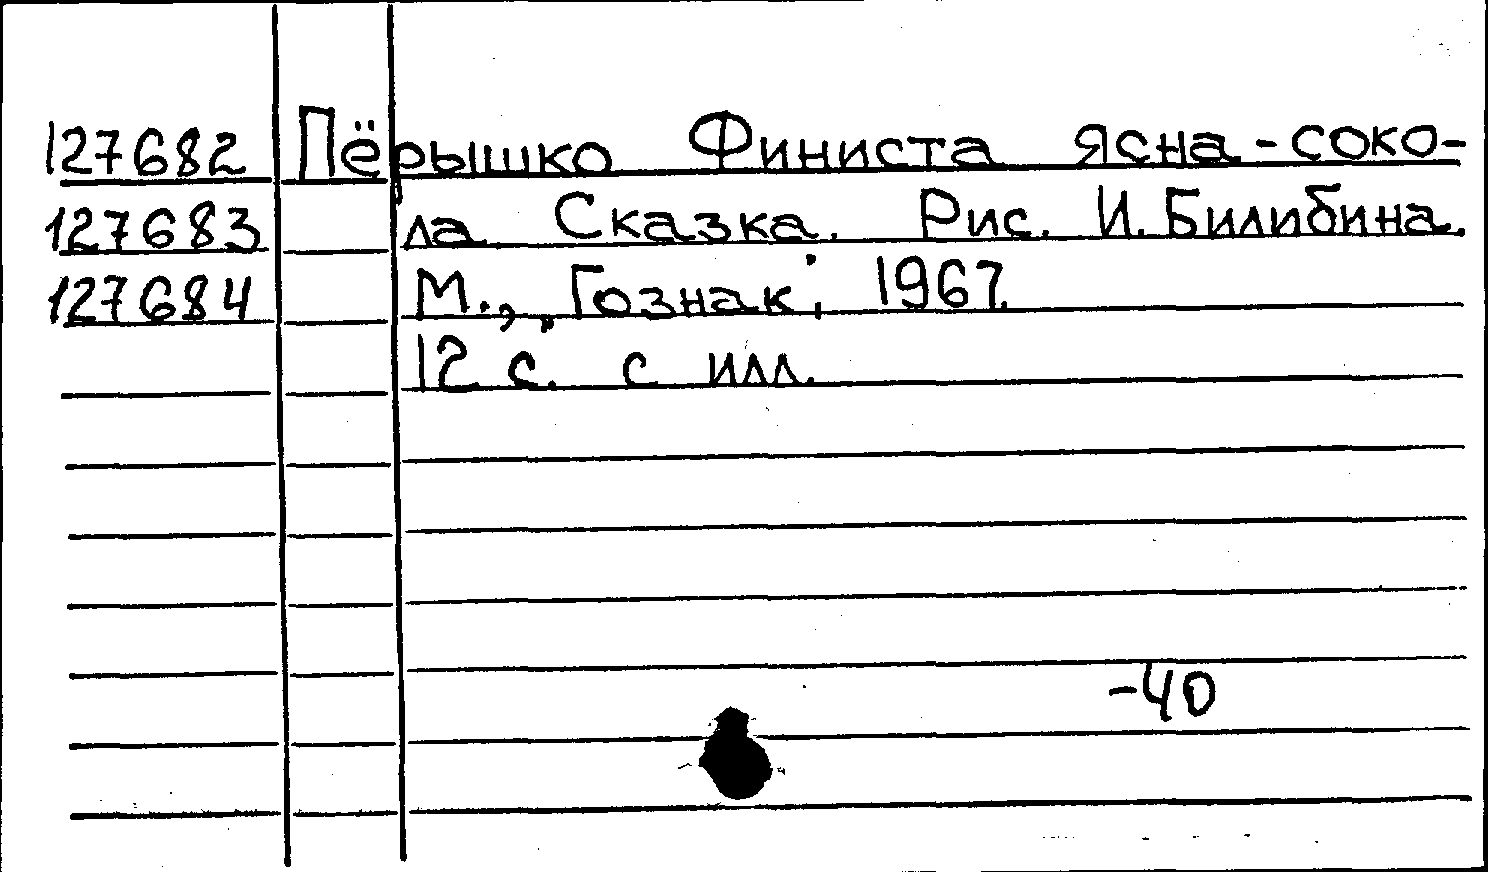 127682 Пёрышко Финиста ясна-соко-
127683 ла. Сказка. Рис. И. Билибина.
127684 М., „Гознак", 1967.
12 с. с илл.
-40